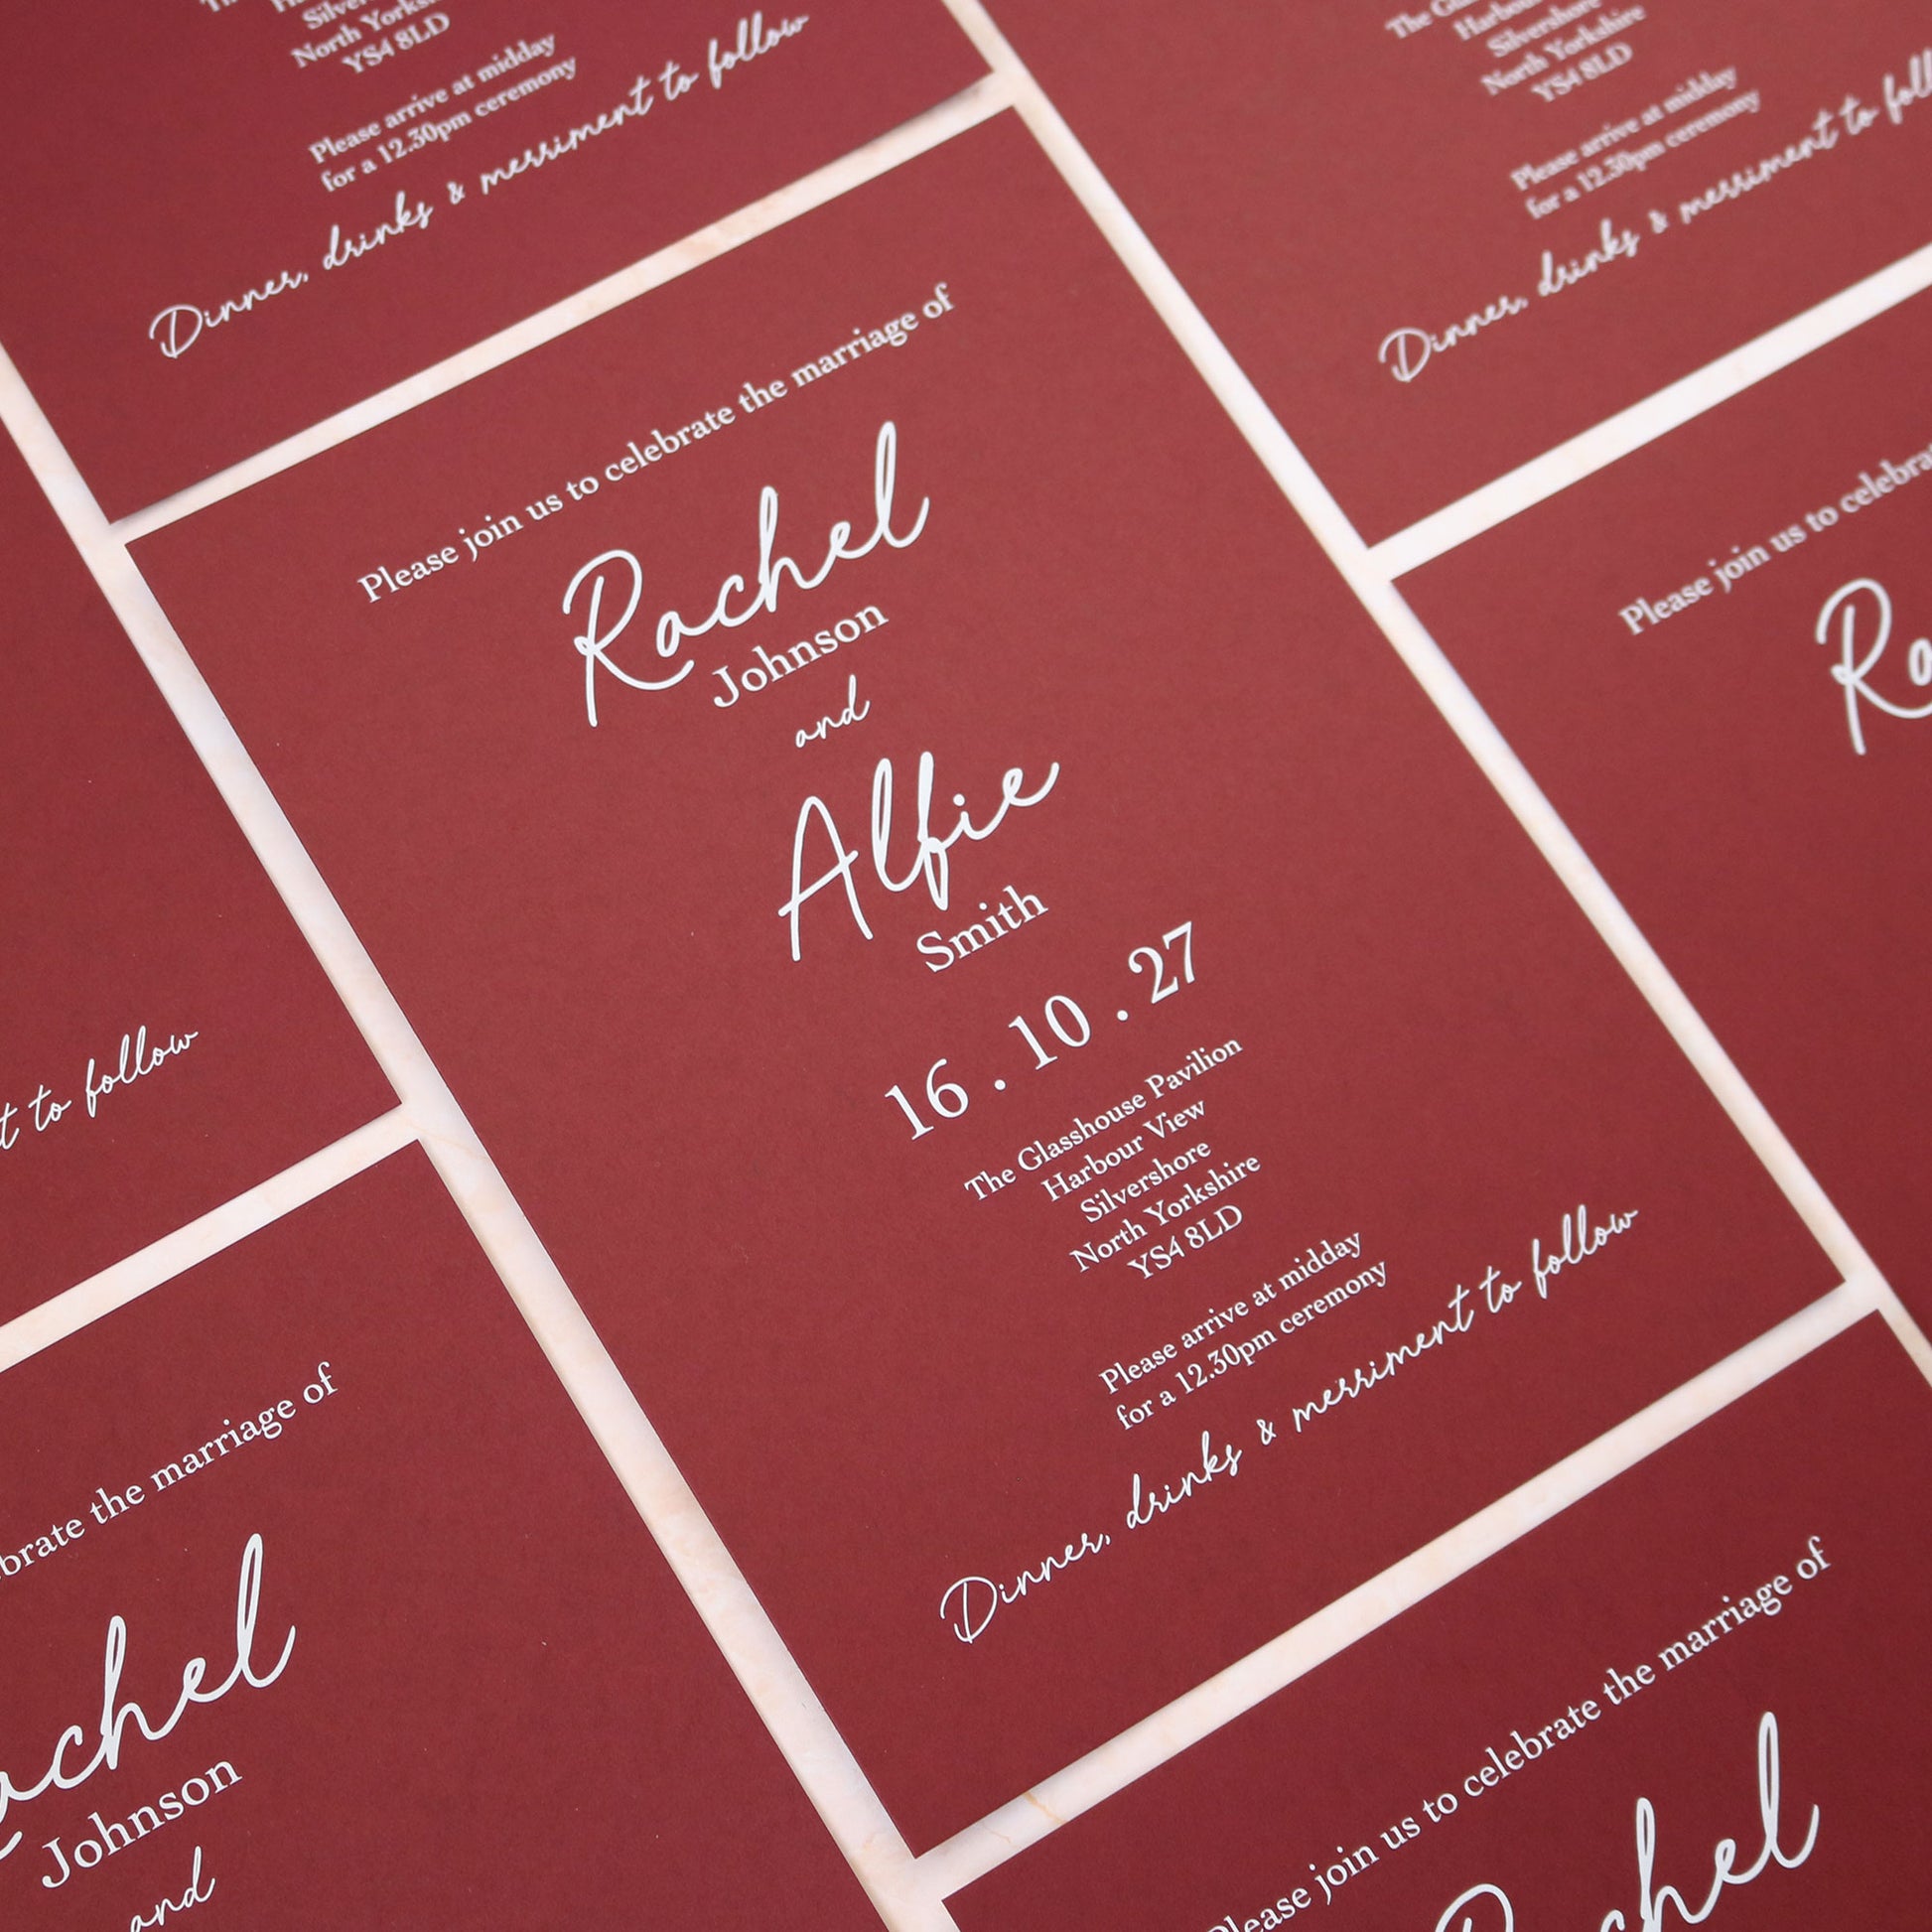 Silvershore
North Yorkshire
YS4 8LD
Please arrive at midday
for a 12.30pm ceremony
Dinner, drinks & merriment to follow
The
Silvershore
North Yorkshire
YS4 8LD
Please arrive at midday
for a 12.30pm ceremony
Dinner, drinks & merriment to
Please join us to celebrate the marriage of
Rachel
Johnson
and
Alfie
Smith
16 . 10 . 27
The Glasshouse Pavilion
Harbour View
Silvershore
North Yorkshire
YS4 8LD
Please arrive at midday
for a 12.30pm ceremony
Dinner, drinks & merriment to follow
Please join us to
to follow
the marriage of
Johnson
and
Please join us to celebrate the marriage of
Rachel